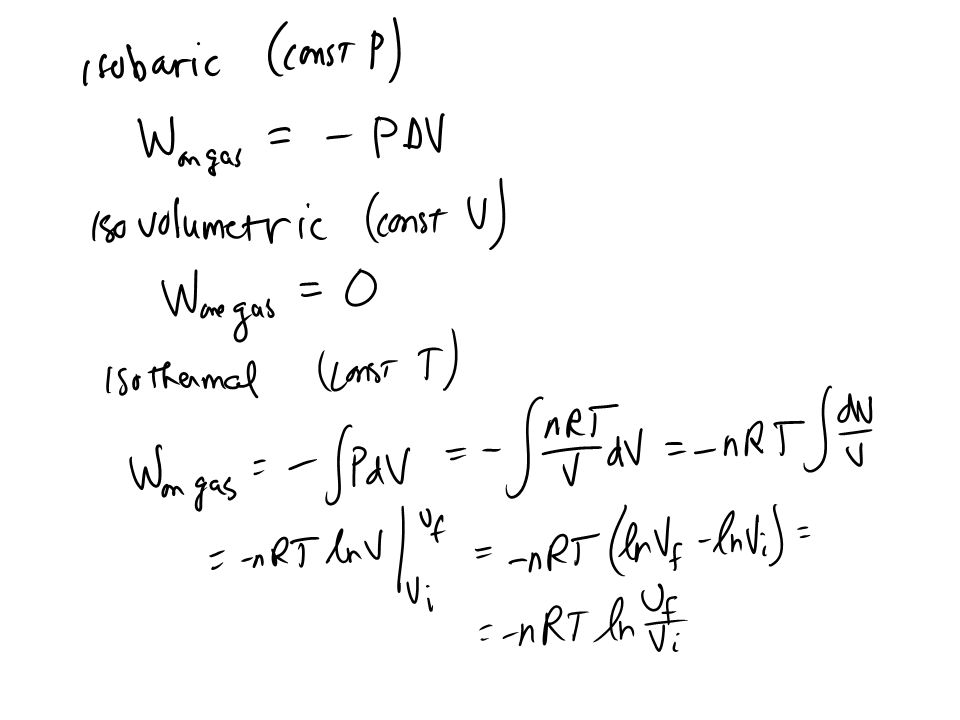 isobaric (const P)
W on gas = - PΔV
isovolumetric (const V)
W one gas = 0
isothermal (const T)
W on gas = - ∫PdV = - ∫ nRT/V dV = -nRT ∫ dV/V
= -nRT lnV | Vf Vi = -nRT (lnVf - lnVi) =
= -nRT ln Vf/Vi